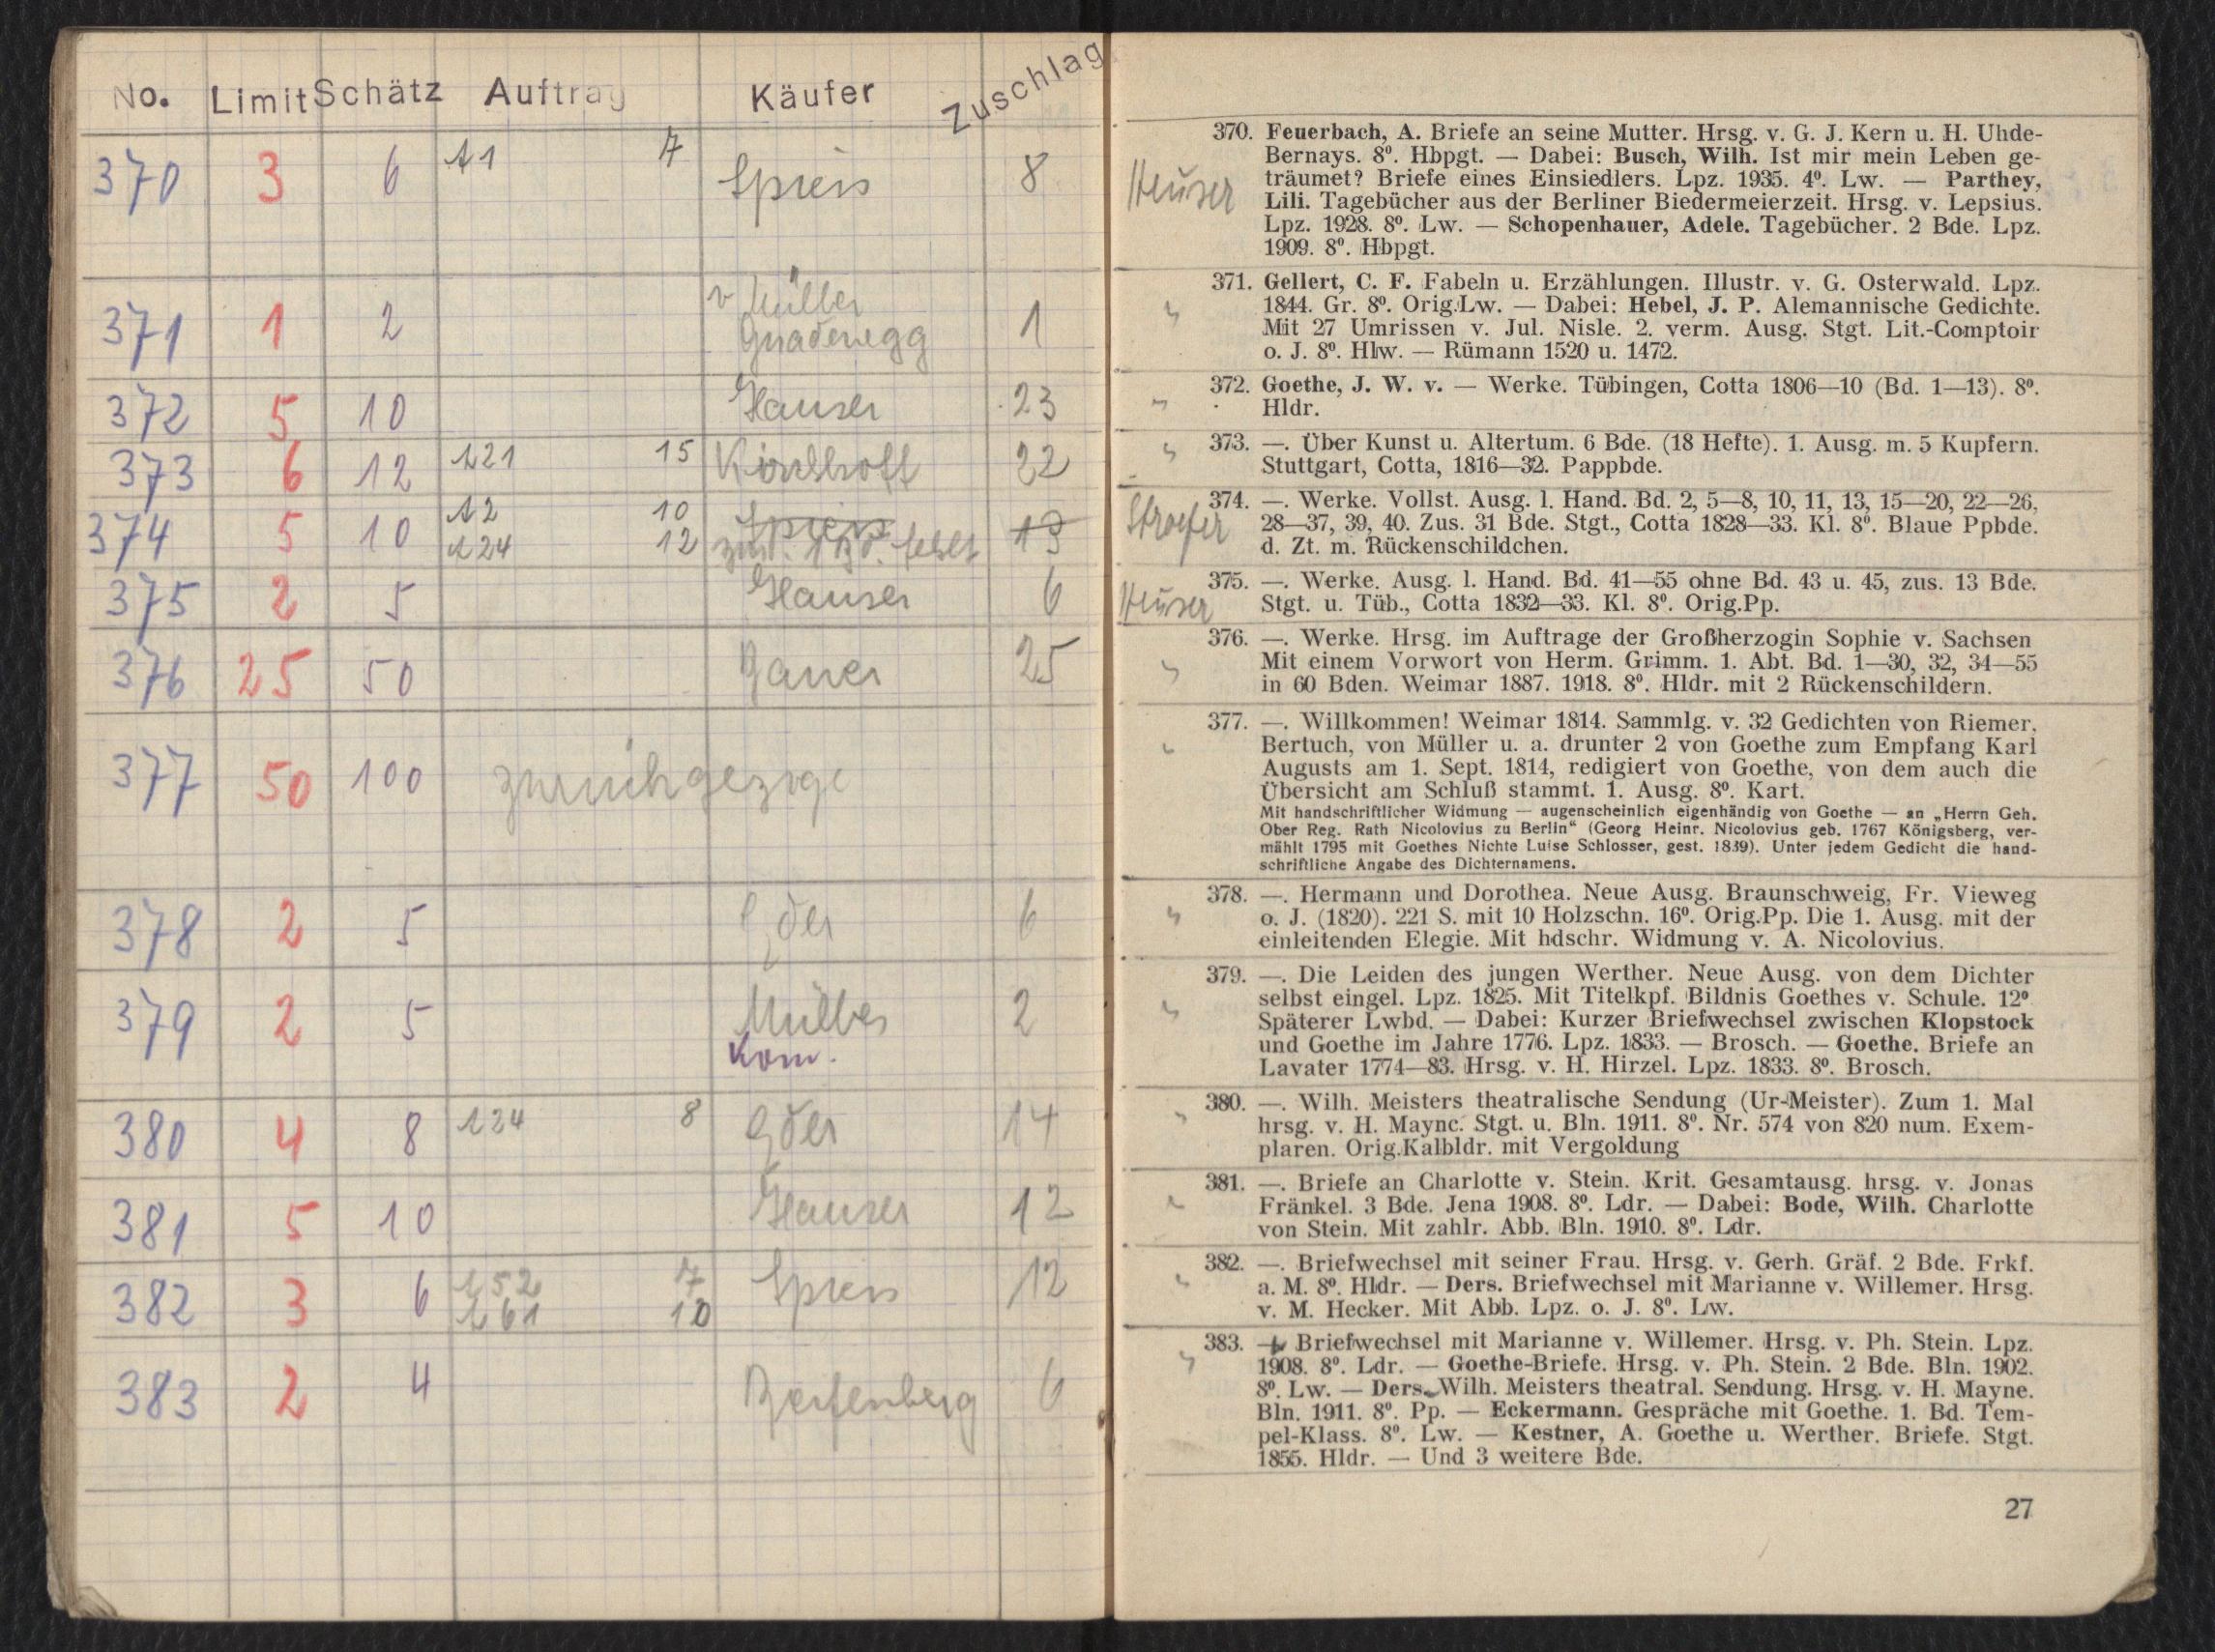 No. Limit Schätz Auftrag Käufer Zuschlag
370 3 6 A1 7 Spiess 8
371 1 2 v Müller
Gnadenegg 1
372 5 10 Hauser 23
373 6 12 L21 15 Kirchhoff 22
374 5 10 A2 10 Spiess 13
L24 12 zur. 1 Bd. fehlt
375 2 5 Hauser 6
376 25 50 Bauer 25
377 50 100 zurückgezoge
378 2 5 Eder 6
379 2 5 Müller 2
Kom.
380 4 8 L24 8 Eder 14
381 5 10 Hauser 12
382 3 6 L52 7 Spiess 12
L61 10
383 2 4 Reifenberg 6
370. Feuerbach, A. Briefe an seine Mutter. Hrsg. v. G. J. Kern u. H. Uhde-
Bernays. 8⁰. Hbpgt. — Dabei: Busch, Wilh. Ist mir mein Leben ge-
Heuser träumet? Briefe eines Einsiedlers. Lpz. 1935. 4⁰. Lw. — Parthey,
Lili. Tagebücher aus der Berliner Biedermeierzeit. Hrsg. v. Lepsius.
Lpz. 1928. 8⁰. Lw. — Schopenhauer, Adele. Tagebücher. 2 Bde. Lpz.
1909. 8⁰. Hbpgt.
371. Gellert, C. F. Fabeln u. Erzählungen. Illustr. v. G. Osterwald. Lpz.
1844. Gr. 8⁰. Orig.Lw. — Dabei: Hebel, J. P. Alemannische Gedichte.
" Mit 27 Umrissen v. Jul. Nisle. 2. verm. Ausg. Stgt. Lit.-Comptoir
o. J. 8⁰. Hlw. — Rümann 1520 u. 1472.
372. Goethe, J. W. v. — Werke. Tübingen, Cotta 1806—10 (Bd. 1—13). 8⁰.
" Hldr.
" 373. —. Über Kunst u. Altertum. 6 Bde. (18 Hefte). 1. Ausg. m. 5 Kupfern.
Stuttgart, Cotta, 1816—32. Pappbde.
374. —. Werke. Vollst. Ausg. l. Hand. Bd. 2, 5—8, 10, 11, 13, 15—20, 22—26,
Stroefer 28—37, 39, 40. Zus. 31 Bde. Stgt., Cotta 1828—33. Kl. 8⁰. Blaue Ppbde.
d. Zt. m. Rückenschildchen.
375. —. Werke. Ausg. l. Hand. Bd. 41—55 ohne Bd. 43 u. 45, zus. 13 Bde.
Heuser Stgt. u. Tüb., Cotta 1832—33. Kl. 8⁰. Orig.Pp.
376. —. Werke. Hrsg. im Auftrage der Großherzogin Sophie v. Sachsen
" Mit einem Vorwort von Herm. Grimm. 1. Abt. Bd. 1—30, 32, 34—55
in 60 Bden. Weimar 1887. 1918. 8⁰. Hldr. mit 2 Rückenschildern.
377. —. Willkommen! Weimar 1814. Sammlg. v. 32 Gedichten von Riemer,
" Bertuch, von Müller u. a. drunter 2 von Goethe zum Empfang Karl
Augusts am 1. Sept. 1814, redigiert von Goethe, von dem auch die
Übersicht am Schluß stammt. 1. Ausg. 8⁰. Kart.
Mit handschriftlicher Widmung — augenscheinlich eigenhändig von Goethe — an „Herrn Geh.
Ober Reg. Rath Nicolovius zu Berlin“ (Georg Heinr. Nicolovius geb. 1767 Königsberg, ver-
mählt 1795 mit Goethes Nichte Luise Schlosser, gest. 1839). Unter jedem Gedicht die hand-
schriftliche Angabe des Dichternamens.
378. —. Hermann und Dorothea. Neue Ausg. Braunschweig, Fr. Vieweg
" o. J. (1820). 221 S. mit 10 Holzschn. 16⁰. Orig.Pp. Die 1. Ausg. mit der
einleitenden Elegie. Mit hdschr. Widmung v. A. Nicolovius.
379. —. Die Leiden des jungen Werther. Neue Ausg. von dem Dichter
selbst eingel. Lpz. 1825. Mit Titelkpf. Bildnis Goethes v. Schule. 12⁰
" Späterer Lwbd. — Dabei: Kurzer Briefwechsel zwischen Klopstock
und Goethe im Jahre 1776. Lpz. 1833. — Brosch. — Goethe. Briefe an
Lavater 1774—83. Hrsg. v. H. Hirzel. Lpz. 1833. 8⁰. Brosch.
380. —. Wilh. Meisters theatralische Sendung (Ur-Meister). Zum 1. Mal
" hrsg. v. H. Maync. Stgt. u. Bln. 1911. 8⁰. Nr. 574 von 820 num. Exem-
plaren. Orig.Kalbldr. mit Vergoldung
381. —. Briefe an Charlotte v. Stein. Krit. Gesamtausg. hrsg. v. Jonas
" Fränkel. 3 Bde. Jena 1908. 8⁰. Ldr. — Dabei: Bode, Wilh. Charlotte
von Stein. Mit zahlr. Abb. Bln. 1910. 8⁰. Ldr.
382. —. Briefwechsel mit seiner Frau. Hrsg. v. Gerh. Gräf. 2 Bde. Frkf.
" a. M. 8⁰. Hldr. — Ders. Briefwechsel mit Marianne v. Willemer. Hrsg.
v. M. Hecker. Mit Abb. Lpz. o. J. 8⁰. Lw.
383. —. Briefwechsel mit Marianne v. Willemer. Hrsg. v. Ph. Stein. Lpz.
" 1908. 8⁰. Ldr. — Goethe-Briefe. Hrsg. v. Ph. Stein. 2 Bde. Bln. 1902.
8⁰. Lw. — Ders. Wilh. Meisters theatral. Sendung. Hrsg. v. H. Mayne.
Bln. 1911. 8⁰. Pp. — Eckermann. Gespräche mit Goethe. 1. Bd. Tem-
pel-Klass. 8⁰. Lw. — Kestner, A. Goethe u. Werther. Briefe. Stgt.
1855. Hldr. — Und 3 weitere Bde.
27